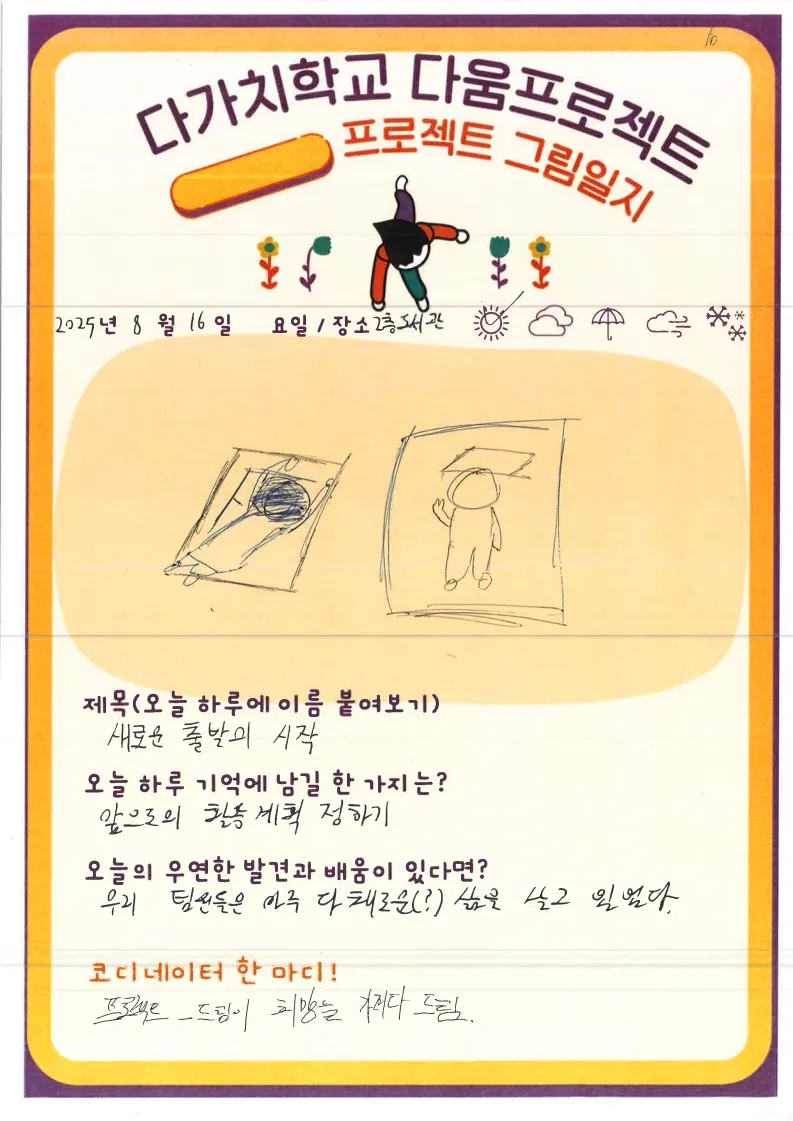 10
다가치학교 다움프로젝트
프로젝트 그림일지
2025년 8월 16일 요일 / 장소 2층도서관
제목(오늘 하루에 이름 붙여보기)
새로운 출발의 시작
오늘 하루 기억에 남길 한 가지는?
앞으로의 활동 계획 정하기
오늘의 우연한 발견과 배움이 있다면?
우리 팀원들은 아주 다채로운(?) 삶을 살고 있었다.
코디네이터 한 마디!
프로젝트 드림이 희망을